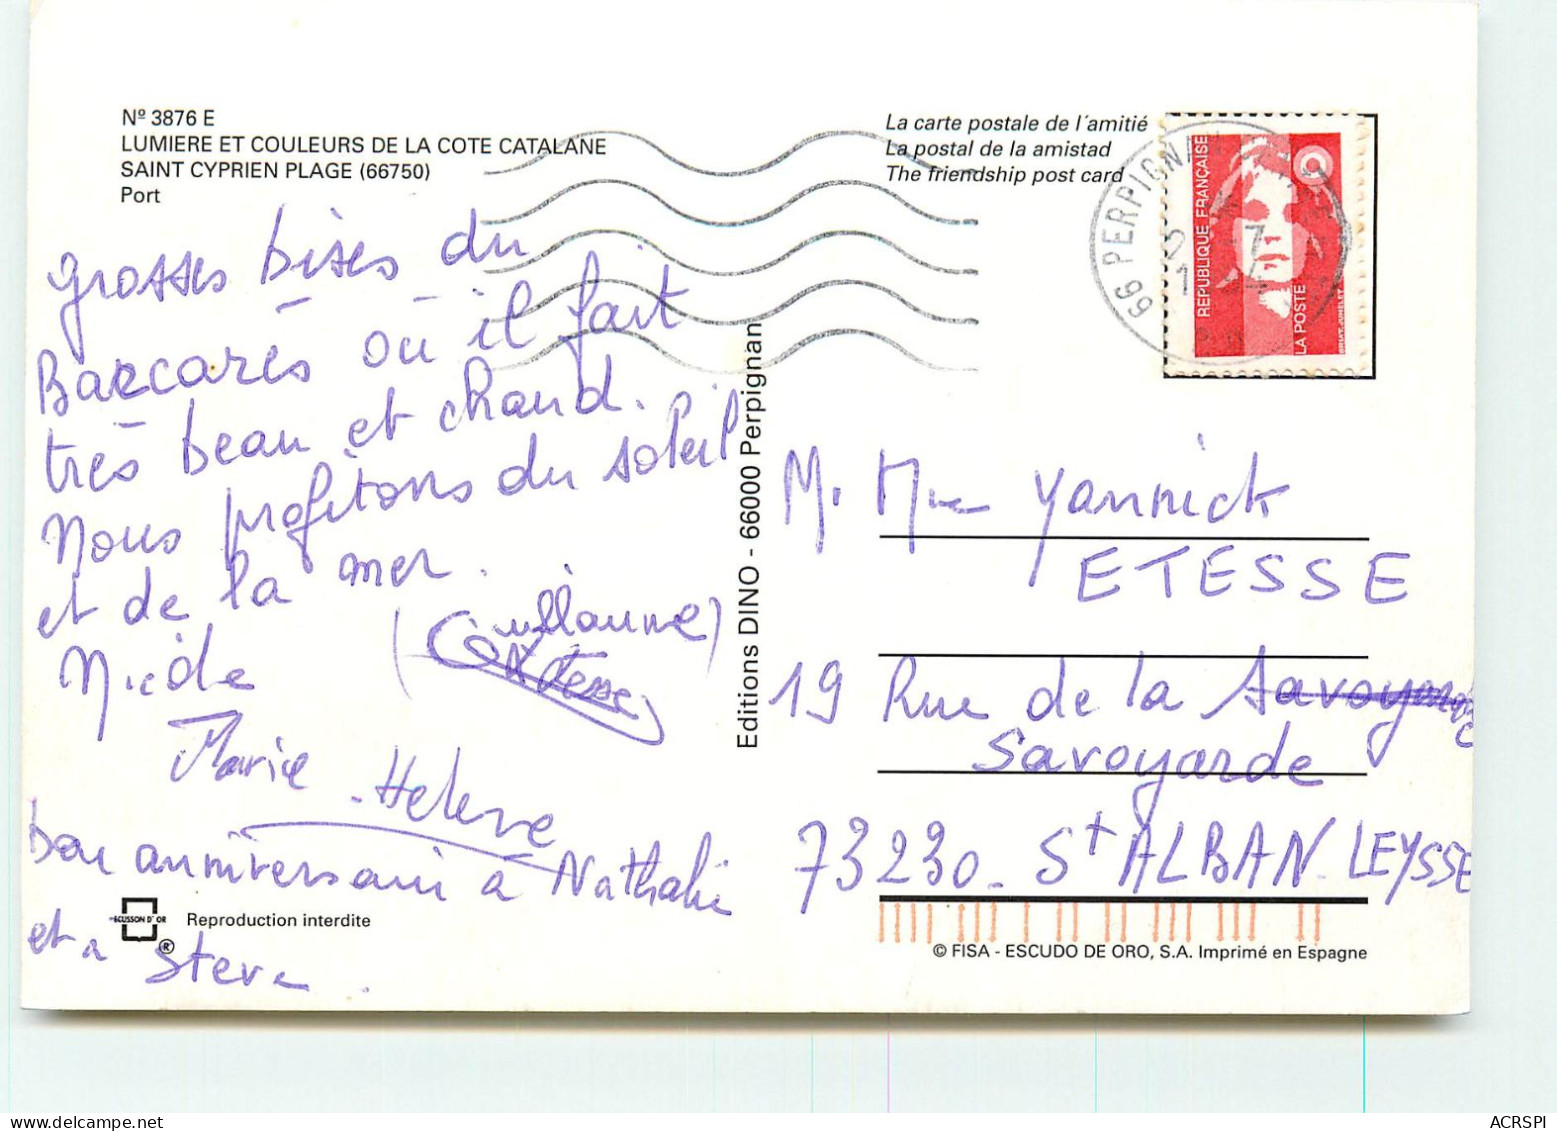 Nº 3876 E
LUMIERE ET COULEURS DE LA COTE CATALANE
SAINT CYPRIEN PLAGE (66750)
Port
grosses bises du
Barcarès où il fait
très beau et chaud.
Nous profitons du soleil
et de la mer.
Nicole
(Guillaume)
Marie-Helene
bon anniversaire à Nathalie
et à Steve.
ECUSSON D'OR
®
Reproduction interdite
Editions DINO - 66000 Perpignan
La carte postale de l´amitié
La postal de la amistad
The friendship post card
66 PERPIGNAN
REPUBLIQUE FRANÇAISE
LA POSTE
M. Mme Yannick
ETESSE
19 Rue de la
Savoyarde
73230 - St ALBAN-LEYSSE
© FISA - ESCUDO DE ORO, S.A. Imprimé en Espagne
ACRSPI